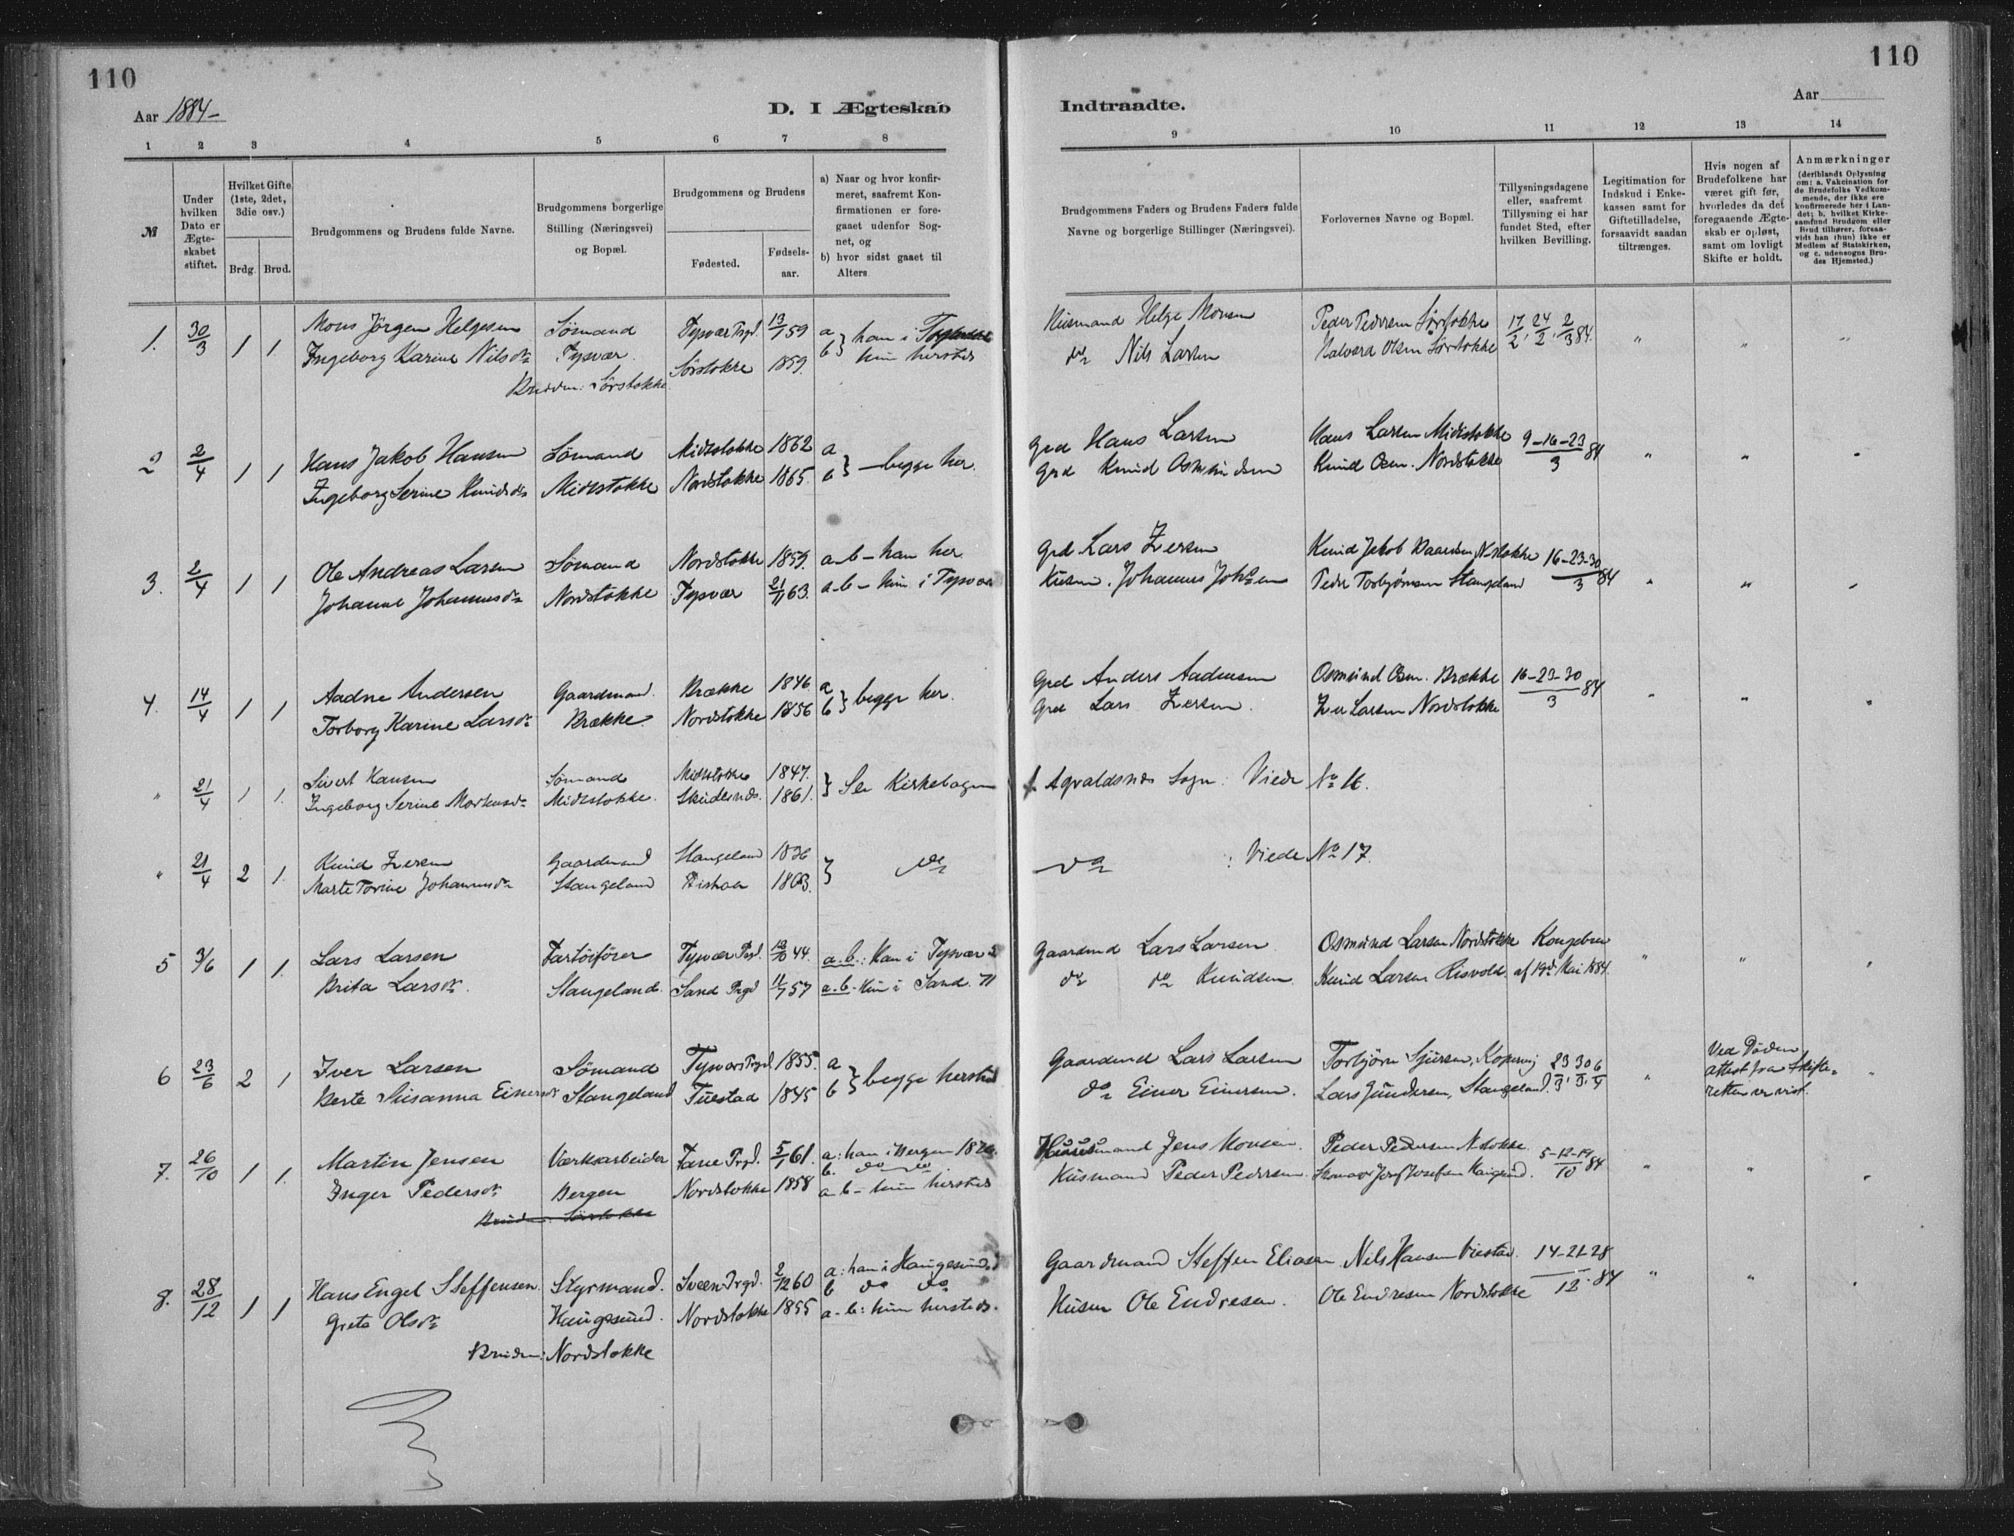 110
110
Aar 1884-
D. I Ægteskab Indtraadte.
Aar
1 2 3 4 5 6 7 8 9 10 11 12 13 14
№
Under hvilken Dato er Ægteskabet stiftet.
Hvilket Gifte (1ste, 2det, 3die osv.)
Brdg. Brud.
Brudgommens og Brudens fulde Navne.
Brudgommens borgerlige Stilling (Næringsvei) og Bopæl.
Brudgommens og Brudens
Fødested. Fødselsaar.
a) Naar og hvor konfirmeret, saafremt Konfirmationen er foregaaet udenfor Sognet, og
b) hvor sidst gaaet til Alters
Brudgommens Faders og Brudens Faders fulde Navne og borgerlige Stillinger (Næringsvei).
Forlovernes Navne og Bopæl.
Tillysningsdagene eller, saafremt Tillysning ei har fundet Sted, efter hvilken Bevilling.
Legitimation for Indskud i Enkekassen samt for Giftetilladelse, forsaavidt saadan tiltrænges.
Hvis nogen af Brudefolkene har været gift før, hvorledes da det foregaaende Ægteskab er opløst, samt om lovligt Skifte er holdt.
Anmærkninger (deriblandt Oplysning om: a. Vakcination for de Brudefolks Vedkommende, der ikke ere konfirmerede her i Landet; b. hvilket Kirkesamfund Brudgom eller Brud tilhører, forsaavidt han (hun) ikke er Medlem af Statskirken, og c. udensogns Brudes Hjemsted.)
1. 30/3 1 1. Mons Jörgen Helgesen Sømand Tysvær Prgd. 13/7 59 a } han i Husmand Helge Monsen Peder Pedersen Sørstokke 17/2, 24/2, 2/3 84. " " "
Ingeborg Karine Nilsdr Tysvær. Sørstokke 1859. b } hun hersteds do Nils Larsen Halvard Olsen Sørstokke
Brudens: Sørstokke
2 2/4 1 1 Hans Jakob Hansen Sømand Midtstokke 1862 a } begge her. Grd Hans Larsen Hans Larsen Midtstokke 9-16-23/3 84 " " "
Ingeborg Serine Knudsdr Midtstokke Nordstokke 1865. b Grd Knud Osmundsen Knud Osm. Nordstokke
3. 2/4 1 1 Ole Andreas Larsen Sømand Nordstokke 1859. a-b- han her. Grd Lars Iversen Knud Jakob Baardsen, N.stokke 16-23-30/3 84 " " "
Johanne Johannesdr Nordstokke Tysvær 21/11 63. a-b- hun i Tysvær Husm. Johannes Johsen Peder Torbjørnsen Stangeland
4. 14/4 1 1 Aadne Andersen Gaardmand. Brække 1846 a } begge her. Grd Anders Aadnesen Osmund Osm. Brække 16-23-30/3 84 " " "
Torborg Karine Larsdr Brække Nordstokke 1856 b } Grd Lars Iversen. Iver Larsen Nordstokke
" 21/4 1 1. Sivert Hansen Sømand Midtstokke 1847. } Se Kirkebogen f. Agvaldsnes Sogn: Viede No 16.
Ingeborg Serine Markusdr Midtstokke. Skudesnes. 1861.
" 21/4 2 1. Knud Iversen Gaardmand Stangeland 1836 } do do : Viede No 17.
Marte Torine Johannesdr Stangeland 1863.
5 3/6 1 1. Lars Larsen Fartöifører Tysvær Prgd. 13/10 44. a.b.: han i Tysvær Gaardmd Lars Larsen. Osmund Larsen Nordstokke Kongebrev " " "
Brita Larsdr. Stangeland. Sand Prgd 11/7 57 a.b.- hun i Sand. do do Knudsen. Knud Larsen Risvold. af 19de Mai 1884.
6 23/6 2 1 Iver Larsen Sømand Tysvær Prgd. 1855. a } begge hersted Gaardmd Lars Larsen Torbjørn Sjursen, Kopervig 23/3, 30/3, 6/4 " Ved Døden attest fra Skifteretten er vist. "
Berte Susanna Einersdr Stangeland Tuestad 1845 b do Einer Einersen. Lars Gundersen, Stangeland.
7. 26/10 1 1. Martin Jensen Værksarbeider Fane Prgd. 5/1 61. a: han i Bergen 1876. Huusmand Jens Monsen. Peder Pedersen N.stokke. 5-12-19/10 84 " " "
b. do do
Inger Pedersdr. Bergen Nordstokke 1858 a-b- hun hersteds Husmand Peder Pedersen. Josefsen Haugesund.
8. 28/12 1 1 Hans Engel Steffensen. Styrmand. Sveen Prgd. 2/12 60 a: han i Haugesund Gaardmand Steffen Eliasen Nils Hansen Viestad. 14-21-28/12. 84 " " "
b do do
Greta Olsdr Haugesund. Nordstokke 1855 a-b: hun hersteds. Husm Ole Endresen. Ole Endresen Nordstokke
Brudens: Nordstokke